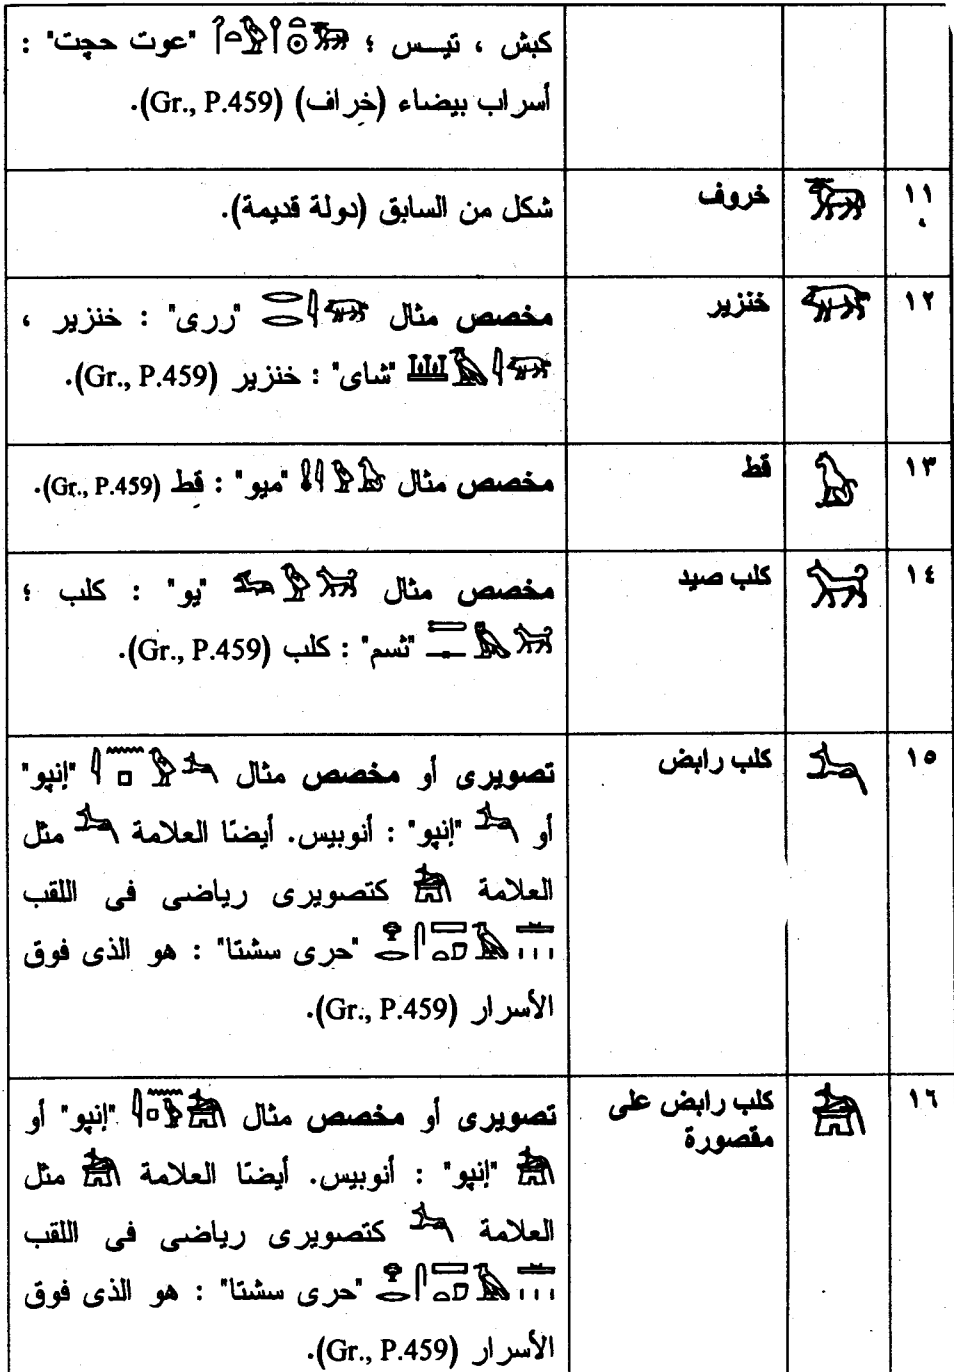 كبش ، تيس ؛ 𓃝𓋲𓌉𓅱𓏏𓋾 "عوت حچت" :
أسراب بيضاء (خراف) (Gr., P.459).
١١ 𓃞 خروف شكل من السابق (دولة قديمة).
١٢ 𓃟 خنزير مخصص مثال 𓂋𓂋𓇋𓃟 "ررى" : خنزير ،
𓆷𓄿𓇋𓃟 "شاى" : خنزير (Gr., P.459).
١٣ 𓃠 قط مخصص مثال "ميو" : قط (Gr., P.459).
١٤ 𓃡 كلب صيد مخصص مثال 𓃛𓅱𓃡 "يو" : كلب ؛
𓍿𓊃𓅓𓃡 "ثسم" : كلب (Gr., P.459).
١٥ 𓃢 كلب رابض تصويرى أو مخصص مثال 𓇋𓈖𓊪𓅱𓃢 "إنپو"
أو 𓃢 "إنپو" : أنوبيس. أيضًا العلامة 𓃢 مثل
العلامة 𓃣 كتصويرى رياضى فى اللقب
"حرى سشتا" : هو الذى فوق
الأسرار (Gr., P.459).
١٦ 𓃣 كلب رابض على تصويرى أو مخصص مثال 𓇋𓈖𓊪𓅱𓃣 "إنپو" أو
مقصورة 𓃣 "إنپو" : أنوبيس. أيضًا العلامة 𓃣 مثل
العلامة 𓃢 كتصويرى رياضى فى اللقب
"حرى سشتا" : هو الذى فوق
الأسرار (Gr., P.459).